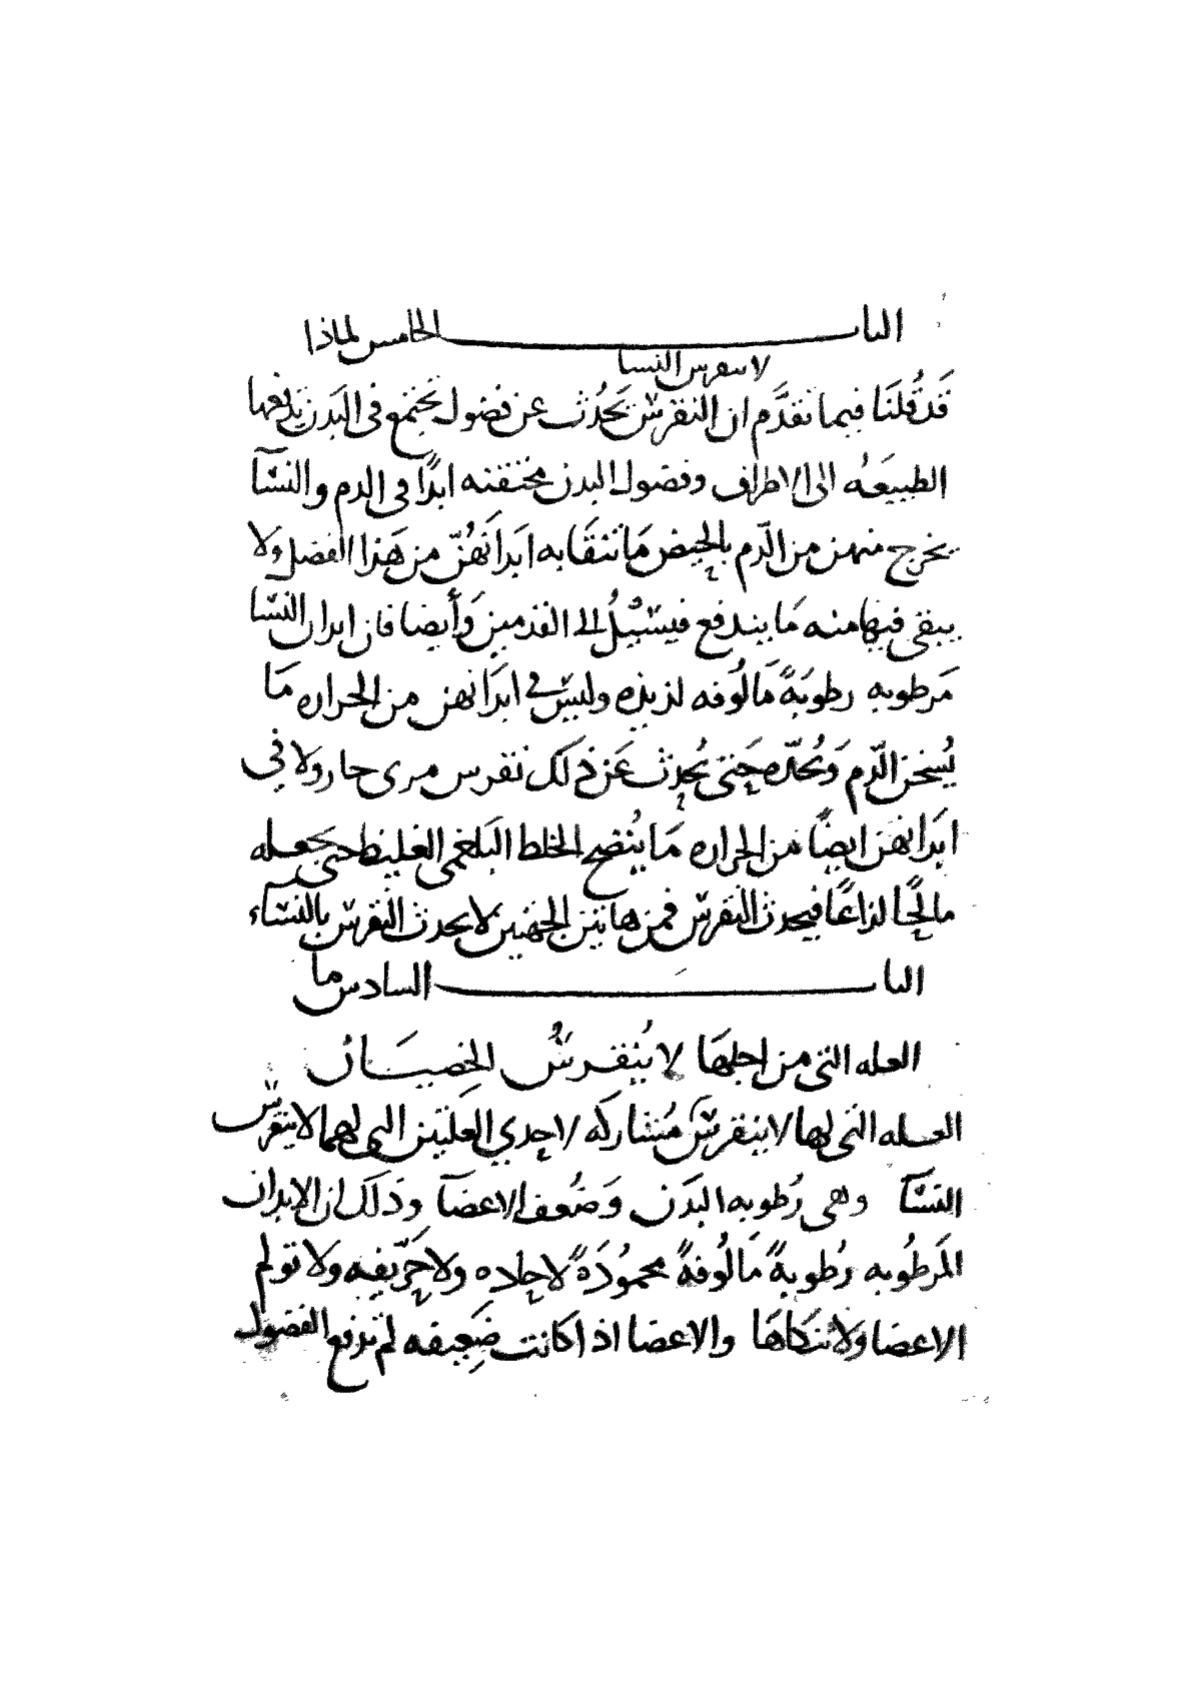 الباب الخامس لماذا
لا ينقرس النسا
قَد قُلنَا فيما تقدَّم ان النقرس يَحدُث عن فضول تجتمع فى البَدَن يَدفعها
الطبيعَه الى الاطراف وفضول البدن مختقنه ابدًا فى الدم والنسآ
يخرج منهن من الدّم بالحيض مَا تنقَا به ابدَانَهُنّ من هَذا الفضل ولا
يبقى فيها منه مَا يندفع فيسيْلُ الى القدمين وَأيضا فان ابدان النسا
مَرطوبه رطوبَةً مَالُوفه لذيذه وليس فى ابدَانهن من الحراره مَا
يُسخن الدّم وَيُحدّه حَتى يُحدِث عَن ذلك نقرس مرى حار ولا فى
ابدَانهن ايضًا من الحراره مَا يُنضج الخلط البَلغمى الغليظ حتى يجعله
مالحًا لذاعًا فيحدث النقرس فمن هاتين الجهتين لا يحدث النقرس بالنسآء
الباب السادس ما
العله التى من اجلهَا لا يُنقرسُ الخِصيَان
العله التى لها لا ينقرس مُشاركه لاحدي العلتين التى لهما لا ينقرس
النسآ وهى رُطوبه البَدَن وَضُعف الاعضآ وذَلَك ان الابدان
المَرطُوبه رُطوبةً مَالُوفةً محمُودَةً لا حاده ولا حَرّيفه ولا تولم
الاعضا ولا تنكاهَا والاعضا اذا كانت ضَعِيفه لم تدفع الفضول